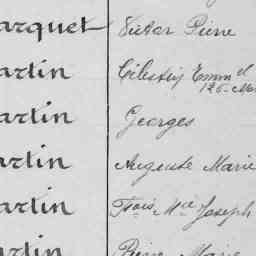 arquet Victor Pierre
artin Célestin Emm.el
126. Mar
artin Georges
artin Auguste Marie
artin Fçois Mie Joseph
artin Pierre Marie